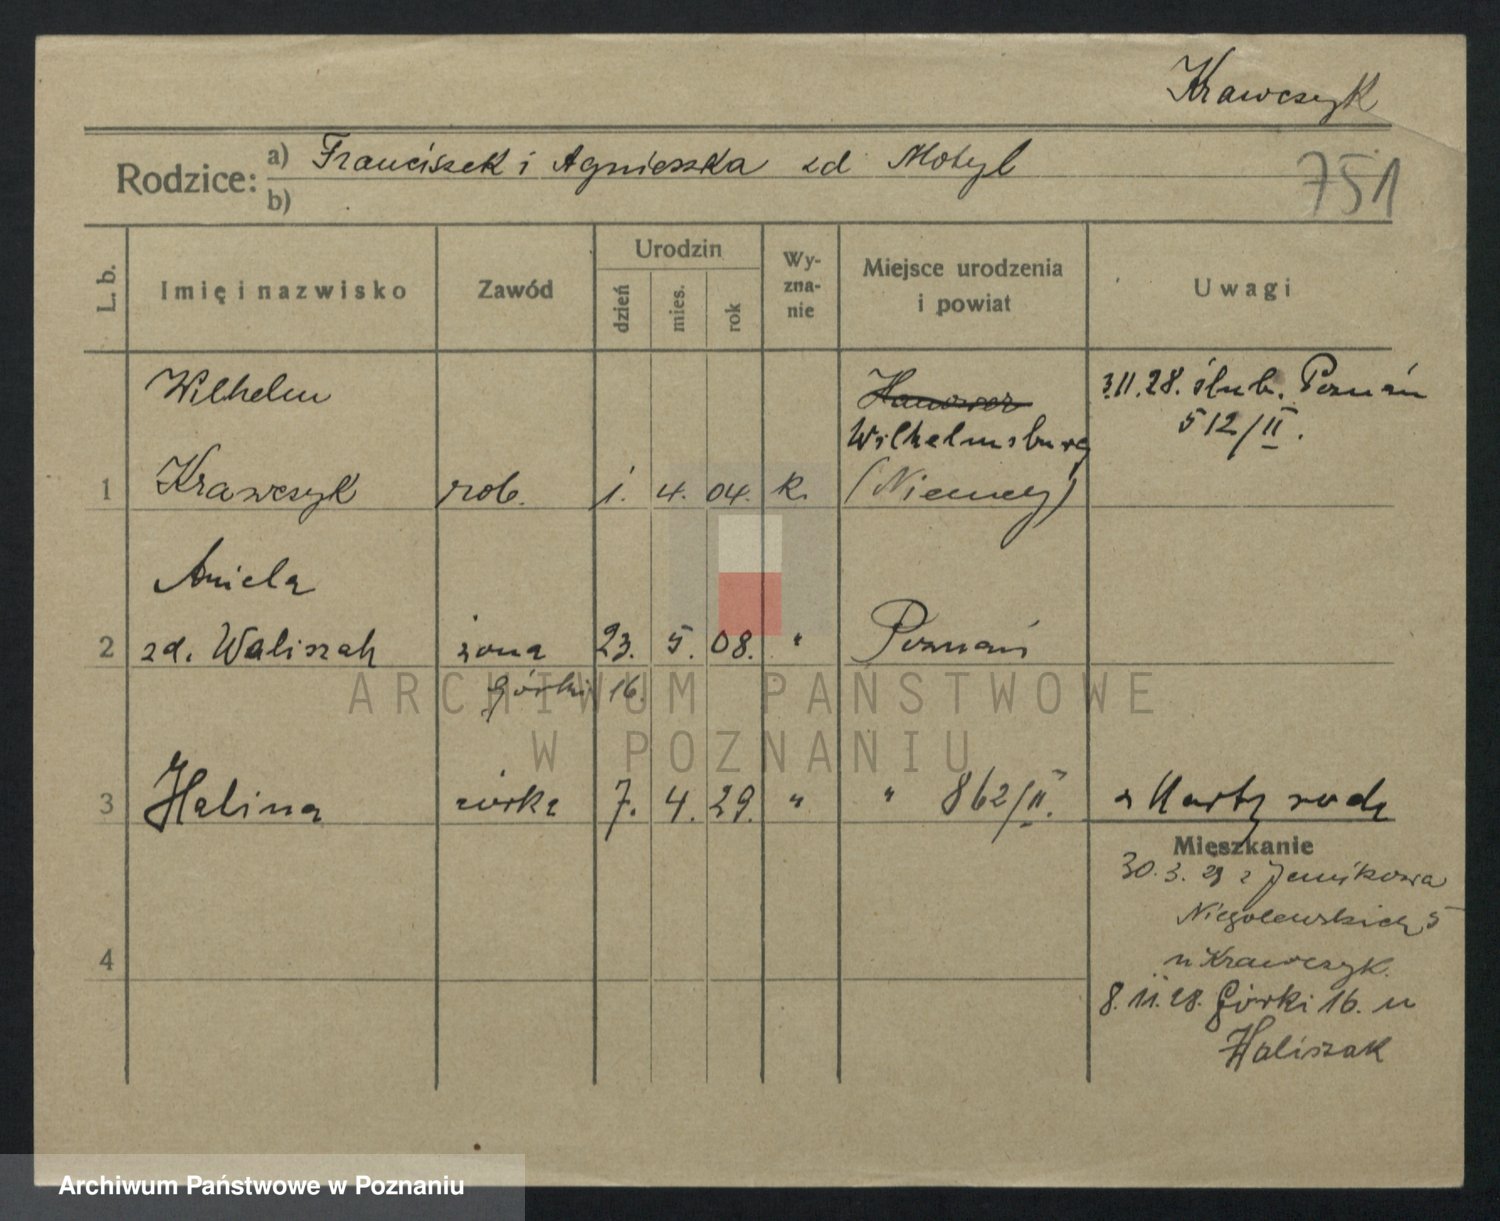 Krawczyk
Rodzice: a) Franciszek i Agnieszka zd Motyl
b)
751
L. b.
Imię i nazwisko
Zawód
Urodzin
dzień
mies.
rok
Wy-
zna-
nie
Miejsce urodzenia
i powiat
Uwagi
Wilhelm
Hanower
Wilhelmsburg
3.11.28. ślub. Poznań
512/II.
1 Krawczyk rob. 1. 4. 04. k. (Niemcy)
Aniela
2 zd. Waliszak żona 23. 5. 08. " Poznań
Górki 16.
ARCHIWUM PAŃSTWOWE
W POZNANIU
3 Halina córka 7. 4. 29. " " 862/II. z karty rodz
Mieszkanie
30. 3. 29 z Junikowa
Niegolewskich 5
u Krawczyk.
4
8.11.28. Górki 16. u
Waliszak
Archiwum Państwowe w Poznaniu